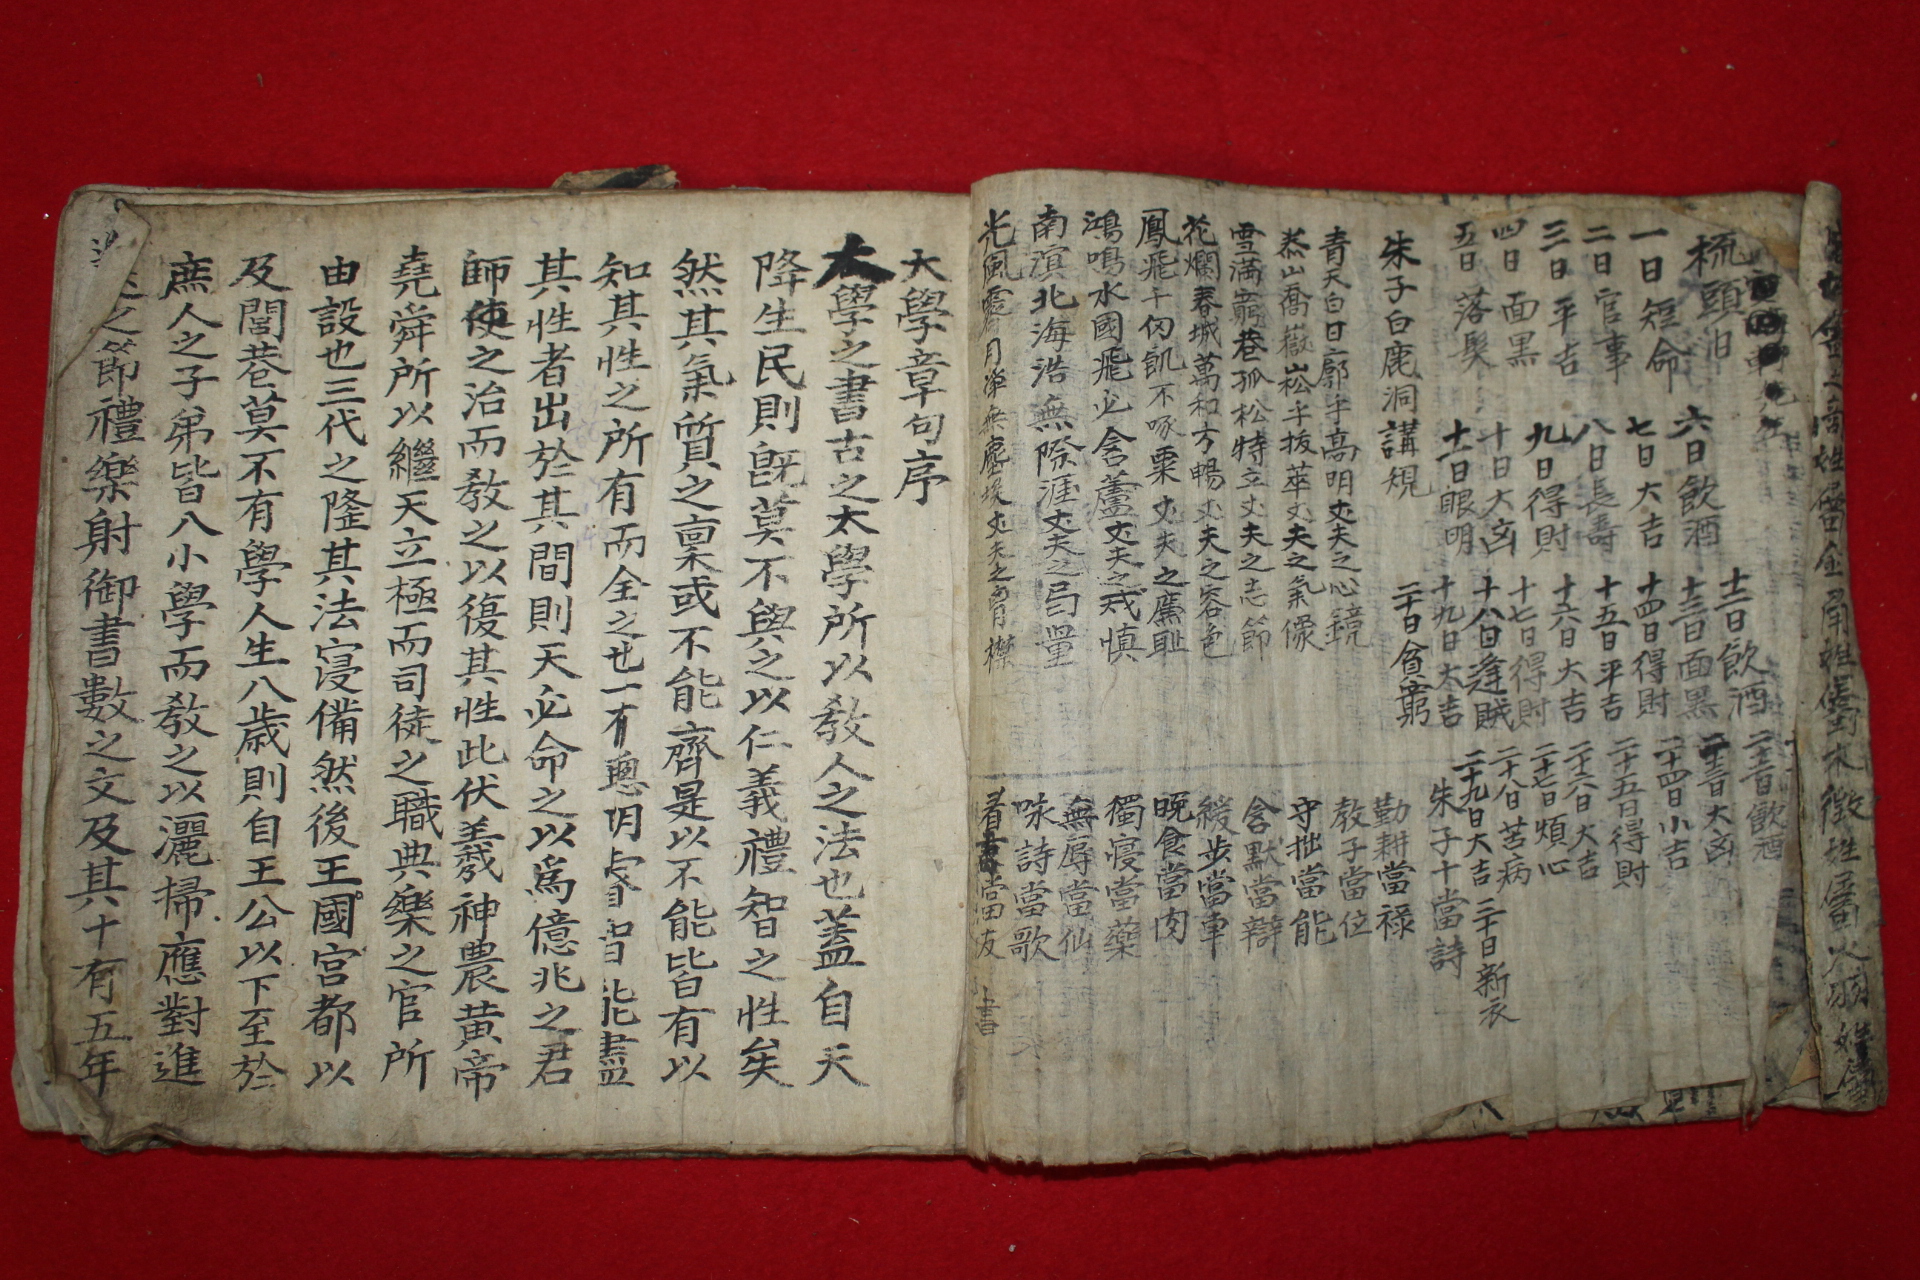 梳頭日
一日短命
二日官事
三日平吉
四日面黑
五日落髮
六日飲酒
七日大吉
八日長壽
九日得財
十日大凶
十一日眼明
十二日飲酒
十三日面黑
十四日得財
十五日平吉
十六日大吉
十七日得財
十八日逢賊
十九日大吉
二十日貧窮
二十二日飲酒
二十三日大凶
二十四日小吉
二十五日得財
二十六日大吉
二十七日煩心
二十八日苦病
二十九日大吉
三十日新衣
朱子白鹿洞講規
青天白日廓乎高明丈夫之心鏡
泰山喬嶽崧乎拔萃丈夫之氣像
雪滿窮巷孤松特立丈夫之志節
花爛春城萬和方暢丈夫之容色
鳳飛千仞飢不啄粟丈夫之廉耻
鴻鳴水國飛必含蘆丈夫之戒慎
南溟北海浩無際涯丈夫之局量
光風霽月淨無塵埃丈夫之胷襟
朱子十當詩
勤耕當祿
教子當位
守拙當能
含默當辯
緩步當車
晩食當肉
獨寢當藥
無辱當仙
咏詩當歌
看書當友
大學章句序
大學之書古之太學所以敎人之法也蓋自天
降生民則旣莫不與之以仁義禮智之性矣
然其氣質之稟或不能齊是以不能皆有以
知其性之所有而全之也一有聰明睿智能盡
其性者出於其間則天必命之以爲億兆之君
師使之治而敎之以復其性此伏羲神農黃帝
堯舜所以繼天立極而司徒之職典樂之官所
由設也三代之隆其法寖備然後王國宮都以
及閭巷莫不有學人生八歲則自王公以下至於
庶人之子弟皆入小學而敎之以灑掃應對進
退之節禮樂射御書數之文及其十有五年